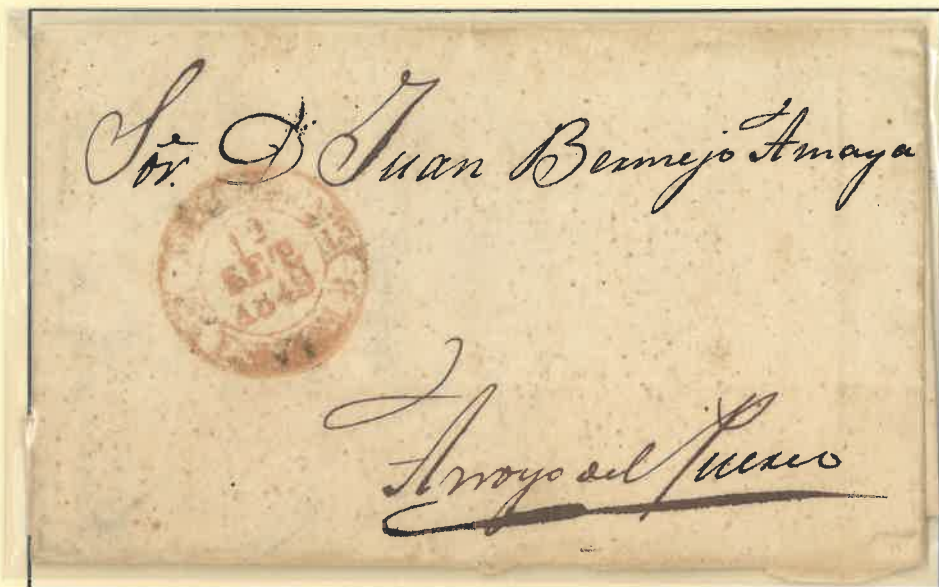 Sor. D Juan Bermejo Amaya
Arroyo del Puerco